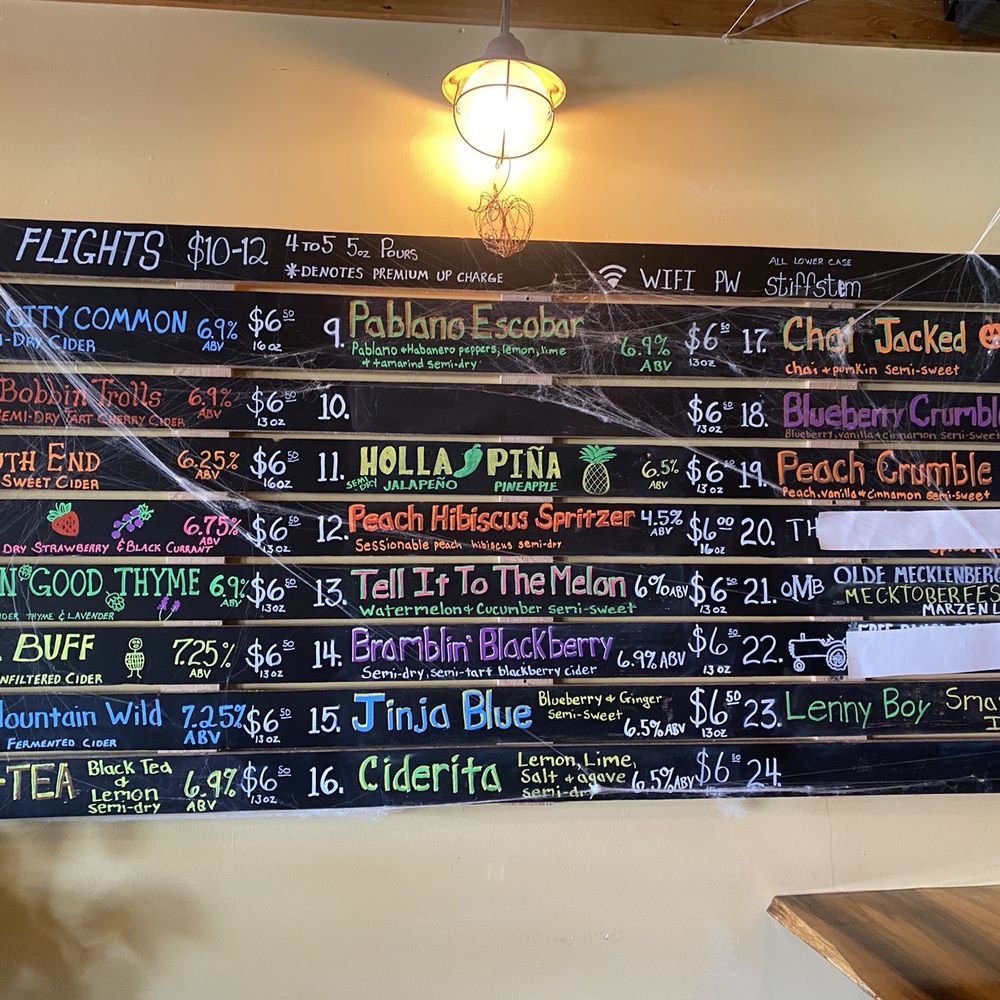 FLIGHTS $10-12 4 TO 5 5oz POURS
*DENOTES PREMIUM UP CHARGE
WIFI PW
ALL LOWER CASE
stiffstem
CITY COMMON 6.9% ABV $6 50 16 oz
-DRY CIDER
Bobbin Trolls 6.9% ABV $6 50 13 oz
SEMI-DRY TART CHERRY CIDER
UTH END 6.25% ABV $6 50 16oz
SWEET CIDER
6.75% ABV $6 50 13 oz
DRY STRAWBERRY & BLACK CURRANT
N' GOOD THYME 6.9% ABV $6 50 13oz
THYME & LAVENDER
BUFF 7.25% ABV $6 50 13oz
NFILTERED CIDER
Mountain Wild 7.25% ABV $6 50 13 oz
FERMENTED CIDER
-TEA Black Tea & Lemon semi-dry 6.9% ABV $6 50 13oz
9. Pablano Escobar 6.9% ABV $6 50 13 oz
Pablano & Habanero peppers, lemon, lime
& tamarind semi-dry
10. $6 50 13 oz
11. HOLLA PIÑA 6.5% ABV $6 50 13 oz
SEMI DRY JALAPEÑO PINEAPPLE
12. Peach Hibiscus Spritzer 4.5% ABV $6 00 16oz
Sessionable peach hibiscus semi-dry
13. Tell It To The Melon 6% ABV $6 50 13oz
Watermelon & Cucumber semi-sweet
14. Bramblin' Blackberry 6.9% ABV $6 50 13 oz
Semi-dry, semi-tart blackberry cider
15. Jinja Blue Blueberry & Ginger Semi-sweet 6.5% ABV $6 50 13oz
16. Ciderita Lemon, Lime, Salt & agave semi-dry 6.5% ABV $6 50 13oz
17. Chai Jacked
chai & pumkin semi-sweet
18. Blueberry Crumbl
Blueberry, vanilla & cinnamon semi-sweet
19. Peach Crumble
Peach, vanilla & cinnamon semi-sweet
20. TH
21. OMB OLDE MECKLENBERG
MECKTOBERFES
MARZEN L
22.
23. Lenny Boy
24.